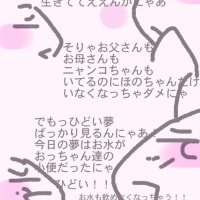 生きててええんかにゃあ
そりゃお父さんも
お母さんも
ニャンコちゃんも
いてるのにほのちゃんだけ
いなくなっちゃダメにゃ
でもっひどい夢
ばっかり見るんにゃあ!
今日の夢はお水が
おっちゃん達の
小便だったにゃ
ひどい!!
お水も飲めなくなっちゃう!!